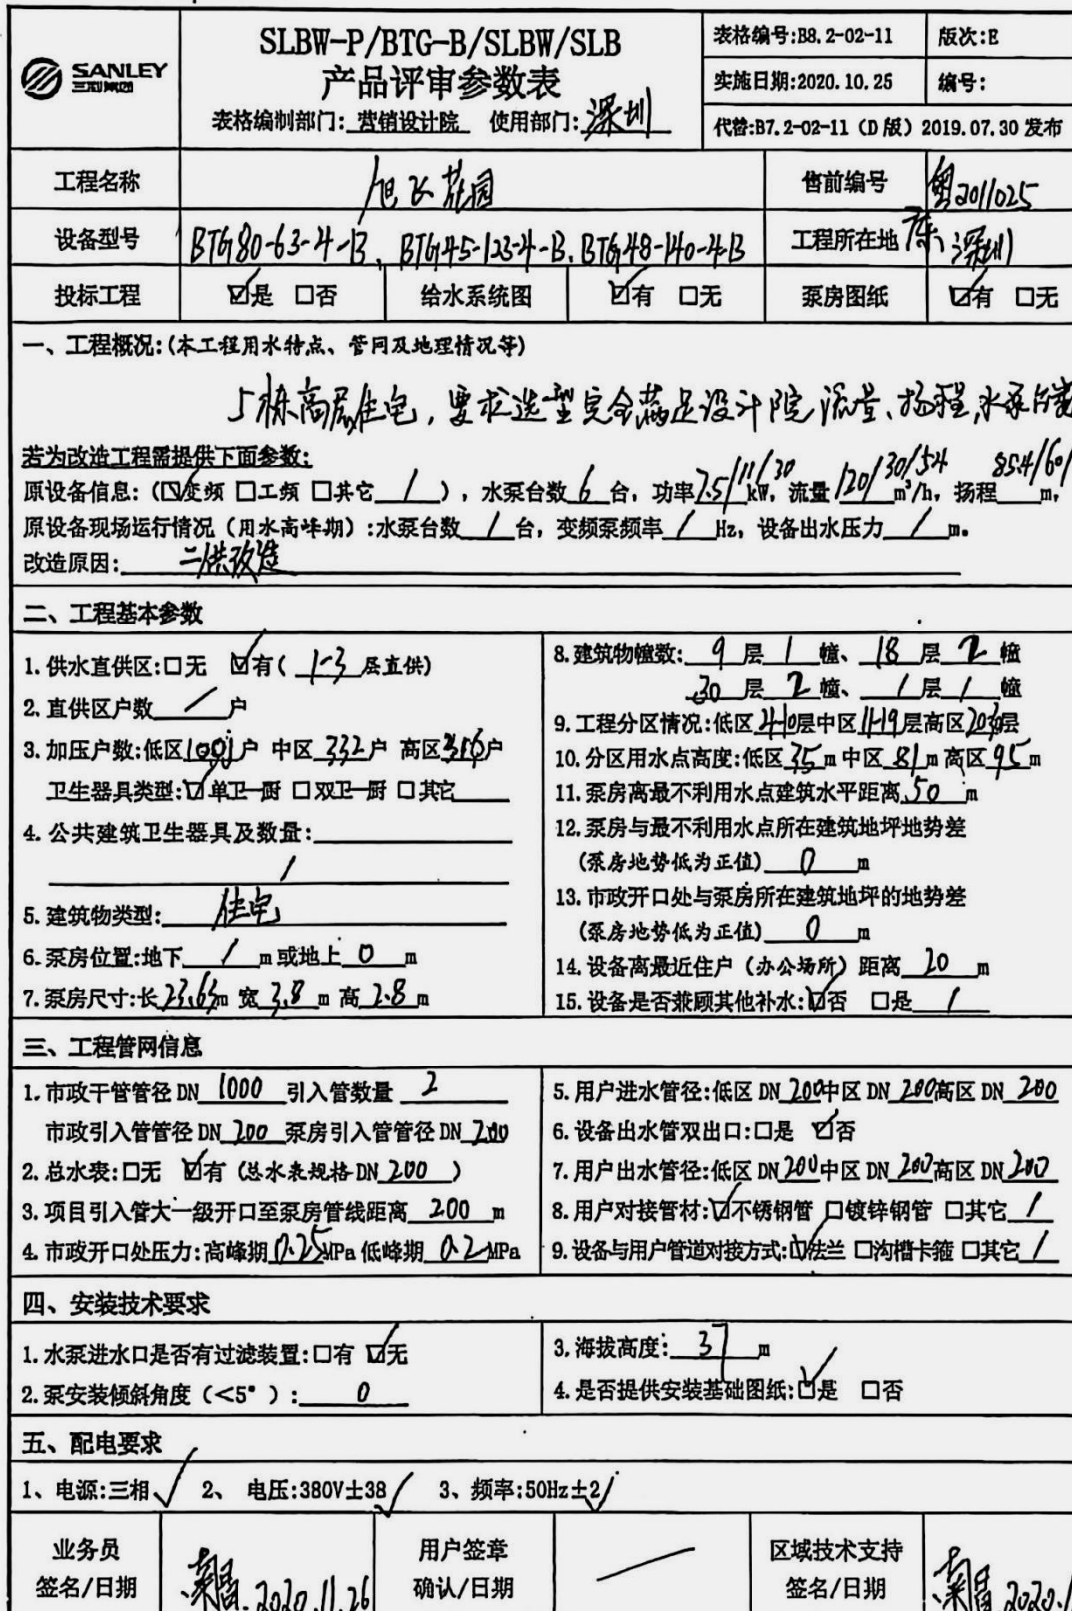 SANLEY
三利集团
SLBW-P/BTG-B/SLBW/SLB
产品评审参数表
表格编制部门:营销设计院 使用部门:深圳
表格编号:B8.2-02-11 版次:E
实施日期:2020.10.25 编号:
代替:B7.2-02-11（D版）2019.07.30 发布
工程名称 旭飞花园 售前编号 粤2011025
设备型号 BTG80-63-4-B、BTG45-123-4-B、BTG48-140-4-B 工程所在地 广东、深圳
投标工程 ☑是 □否 给水系统图 ☑有 □无 泵房图纸 ☑有 □无
一、工程概况:(本工程用水特点、管网及地理情况等)
5栋高层住宅，要求选型完全满足设计院流量、扬程、水泵台数
若为改造工程需提供下面参数:
原设备信息:（☑变频 □工频 □其它 / ），水泵台数 6 台，功率 7.5/11/30 kW，流量 120/30/54 m³/h，扬程 85.4/60/ m，
原设备现场运行情况（用水高峰期）:水泵台数 / 台，变频泵频率 / Hz，设备出水压力 / m。
改造原因: 二供改造
二、工程基本参数
1.供水直供区:□无 ☑有( 1-3 层直供)
2.直供区户数 / 户
3.加压户数:低区 户 中区 332 户 高区 户
卫生器具类型:☑单卫一厨 □双卫一厨 □其它
4.公共建筑卫生器具及数量:
/
5.建筑物类型: 住宅
6.泵房位置:地下 / m或地上 0 m
7.泵房尺寸:长 23.63 m 宽 3.8 m 高 2.8 m
8.建筑物幢数: 9 层 1 幢、 18 层 2 幢
30 层 2 幢、 / 层 / 幢
9.工程分区情况:低区 4-10 层中区 11-19 层高区 20-30 层
10.分区用水点高度:低区 35 m 中区 81 m 高区 95 m
11.泵房离最不利用水点建筑水平距离 50 m
12.泵房与最不利用水点所在建筑地坪地势差
(泵房地势低为正值) 0 m
13.市政开口处与泵房所在建筑地坪的地势差
(泵房地势低为正值) 0 m
14.设备离最近住户（办公场所）距离 20 m
15.设备是否兼顾其他补水:☑否 □是 /
三、工程管网信息
1.市政干管管径 DN 1000 引入管数量 2
市政引入管管径 DN 200 泵房引入管管径 DN 200
2.总水表:□无 ☑有（总水表规格 DN 200 ）
3.项目引入管大一级开口至泵房管线距离 200 m
4.市政开口处压力:高峰期 0.25 MPa 低峰期 0.2 MPa
5.用户进水管径:低区 DN 200 中区 DN 200 高区 DN 200
6.设备出水管双出口:□是 ☑否
7.用户出水管径:低区 DN 200 中区 DN 200 高区 DN 200
8.用户对接管材:☑不锈钢管 □镀锌钢管 □其它 /
9.设备与用户管道对接方式:☑法兰 □沟槽卡箍 □其它 /
四、安装技术要求
1.水泵进水口是否有过滤装置:□有 ☑无
2.泵安装倾斜角度（＜5°）: 0
3.海拔高度: 37 m
4.是否提供安装基础图纸:☑是 □否
五、配电要求
1、电源:三相✓ 2、 电压:380V±38✓ 3、频率:50Hz±2✓
业务员
签名/日期 2020.11.26
用户签章
确认/日期
区域技术支持
签名/日期 2020.1